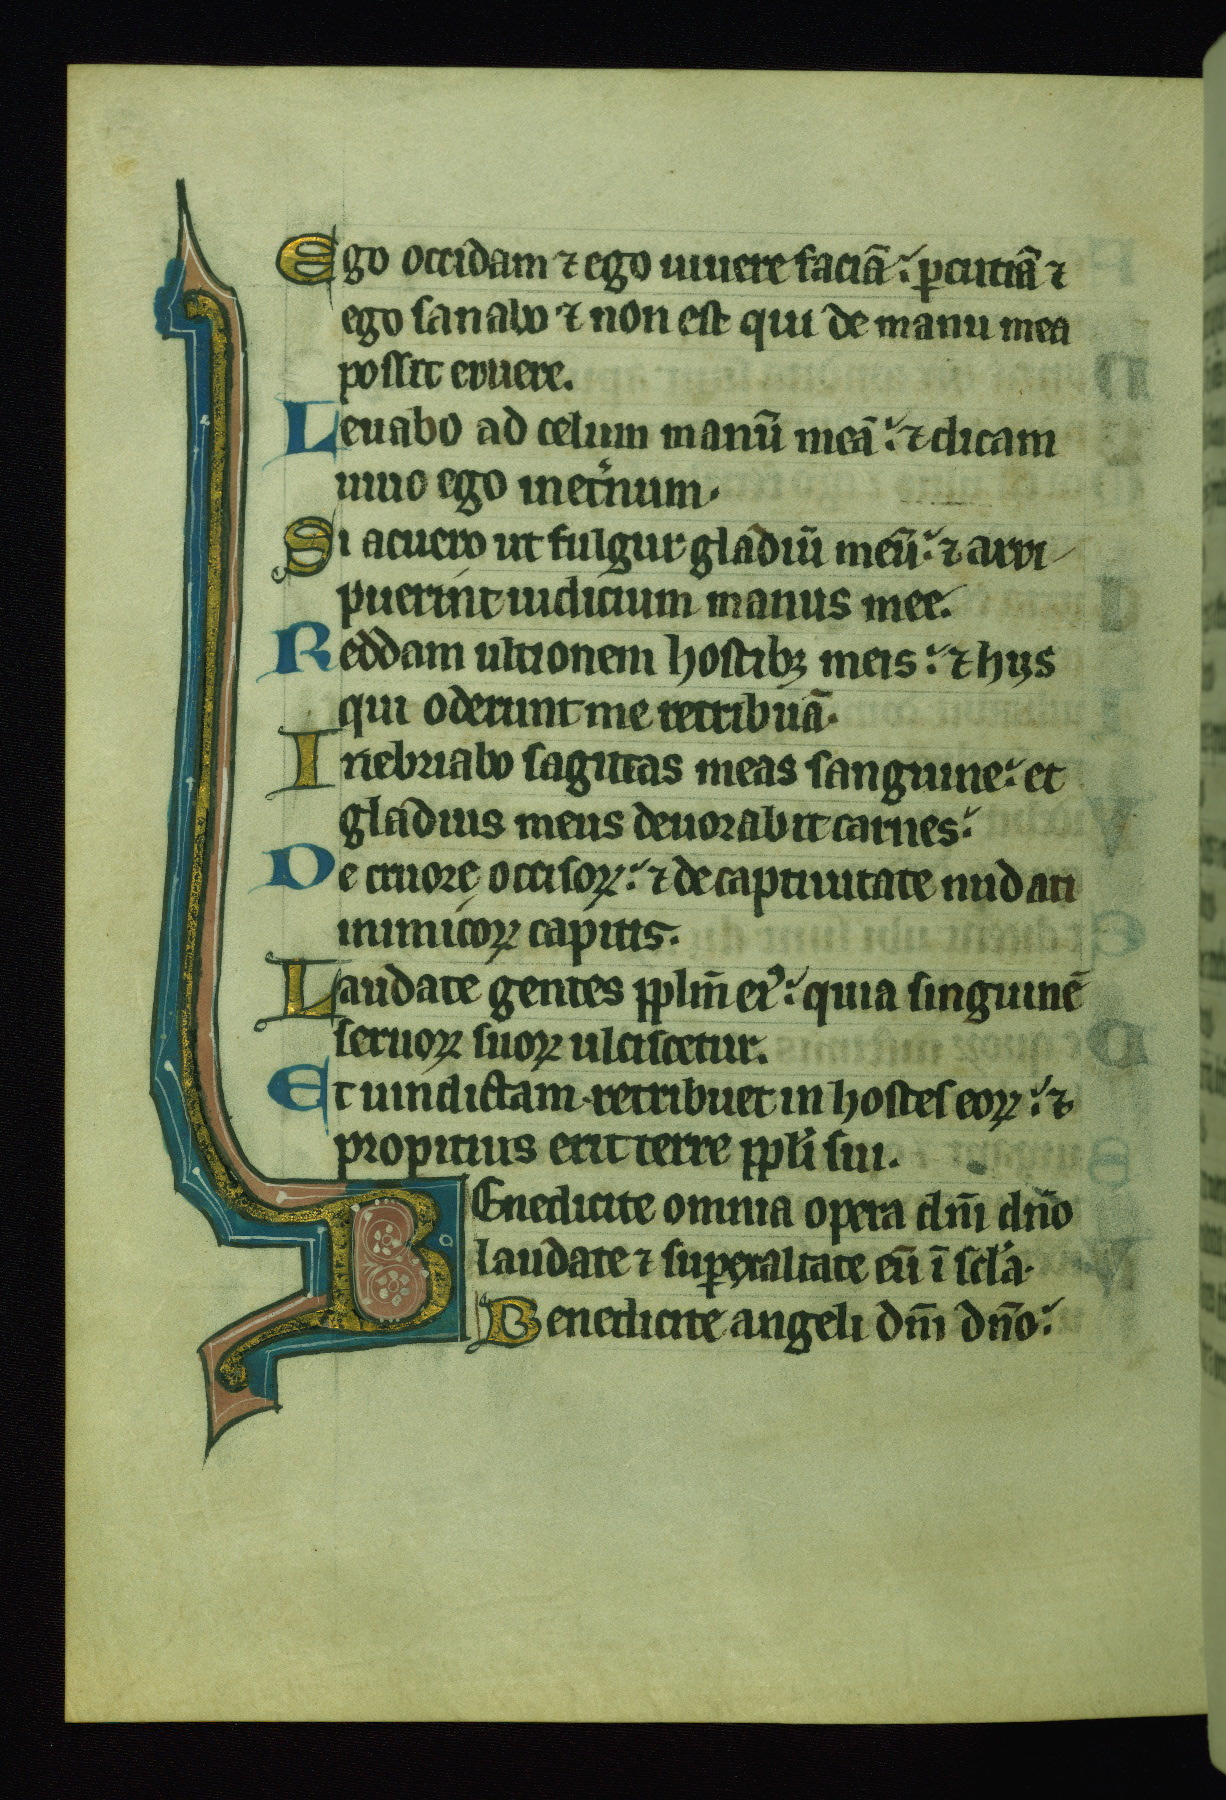 Ego occidam ⁊ ego uiuere faciā: ꝑcutiā ⁊
ego sanabo ⁊ non est qui de manu mea
possit eruere.
Leuabo ad celum manū meā: ⁊ dicam
uiuo ego inet̾num.
Si acuero ut fulgur gladiū meū: ⁊ arri
puerint iudicium manus mee.
Reddam ultionem hostibꝫ meis: ⁊ hijs
qui oderunt me retribuā.
Inebriabo sagittas meas sanguine: et
gladius meus deuorabit carnes:
De cruore occisoꝝ: ⁊ de captiuitate nudati
inimicoꝝ capitis.
Laudate gentes pplm̄ eiꝰ: quia singuinē
seruoꝝ suoꝝ ulciscetur.
Et uindictam retribuet in hostes eoꝝ: ⁊
propitius erit terre ppl̄i sui.
BEnedicite omnia opera dn̄i dn̄o
laudate ⁊ suꝑexaltate eū ī sc̄la.
Benedicite angeli dn̄i dn̄o: